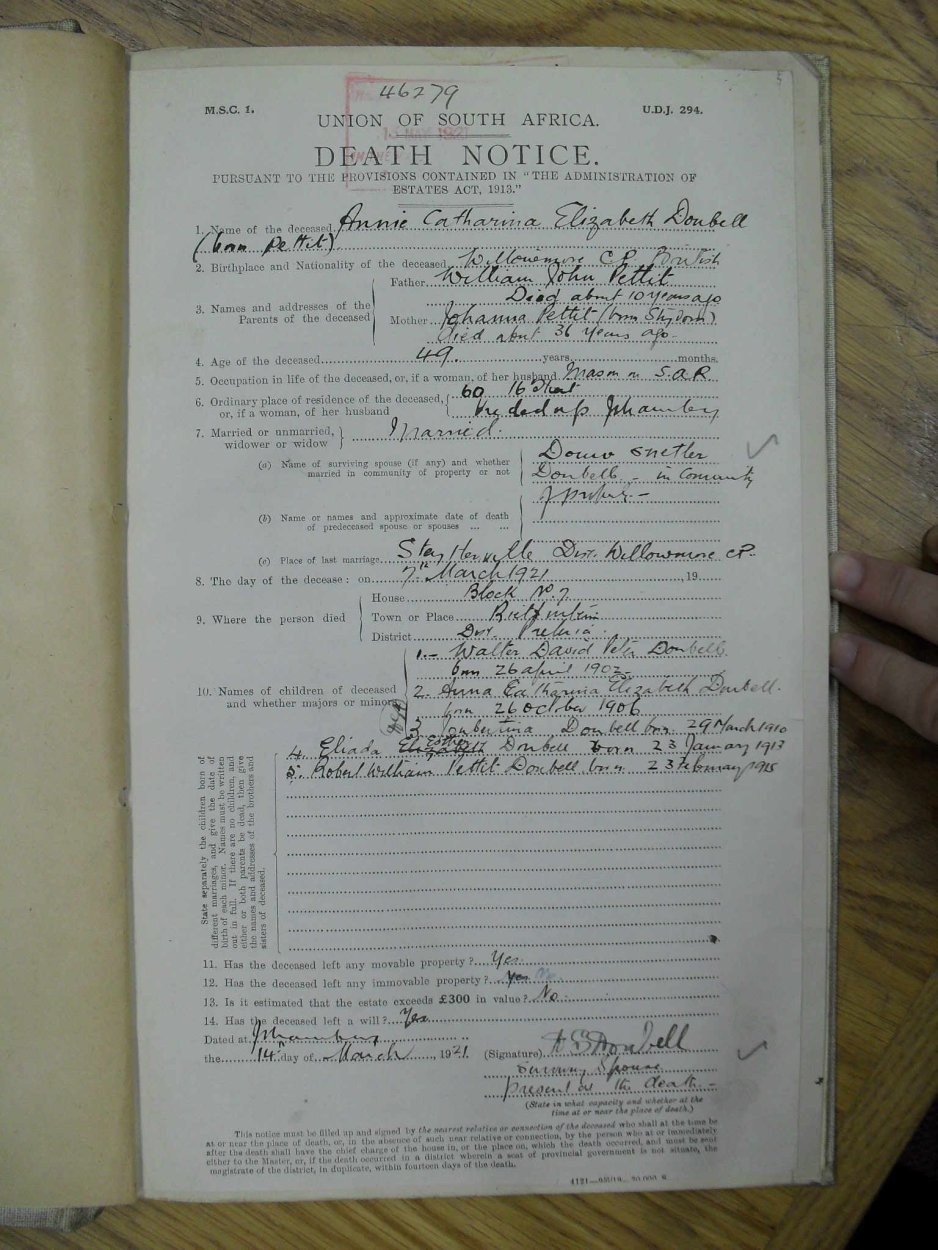 46279
M.S.C. 1.
U.D.J. 294.
UNION OF SOUTH AFRICA.
MAY 1921
DEATH NOTICE.
PURSUANT TO THE PROVISIONS CONTAINED IN "THE ADMINISTRATION OF
ESTATES ACT, 1913."
1. Name of the deceased Annie Catharina Elizabeth Doubell
(born Pettit)
2. Birthplace and Nationality of the deceased Willowmore C.P. British
3. Names and addresses of the Parents of the deceased
Father William John Pettit
Died about 10 years ago
Mother Johanna Pettit (born Strydom)
died about 36 years ago
4. Age of the deceased 49 years months.
5. Occupation in life of the deceased, or, if a woman, of her husband Mason in S.A.R
6. Ordinary place of residence of the deceased, or, if a woman, of her husband
60 16 Street
Vrededorp Jhannbg
7. Married or unmarried, widower or widow } Married.
(a) Name of surviving spouse (if any) and whether married in community of property or not
Doubell - in Community
of property -
(b) Name or names and approximate date of death of predeceased spouse or spouses ... ...
(c) Place of last marriage Steytlerville Dist. Willowmore C.P.
8. The day of the decease: on 7th March 1921 , 19
9. Where the person died
House Block No. 7
Town or Place Rietfontein
District Dist. Pretoria
10. Names of children of deceased and whether majors or minors
1.- Walter David Peter Doubell
born 26 april 1902
2. Anna Catharina Elizabeth Doubell.
born 26 October 1906
3 Joubertina Doubell born 29 March 1910
4. Eliada Esther Doubell born 23 January 1913
5. Robert William Pettit Doubell born 23 February 1915
State separately the children born of
different marriages, and give the date of
birth of each minor. Names must be written
out in full. If there are no children, and
either or both parents be dead, then give
the names and addresses of the brothers and
sisters of deceased.
11. Has the deceased left any movable property? Yes
12. Has the deceased left any immovable property? Yes No
13. Is it estimated that the estate exceeds £300 in value? No
14. Has the deceased left a will? Yes
Dated at Jhannburg
the 14th day of March , 1921.
(Signature) Doubell
Surviving Spouse
present at the death -
(State in what capacity and whether at the
time at or near the place of death.)
This notice must be filled up and signed by the nearest relative or connection of the deceased who shall at the time be
at or near the place of death, or, in the absence of such near relative or connection, by the person who at or immediately
after the death shall have the chief charge of the house in, or the place on, which the death occurred, and must be sent
either to the Master, or, if the death occurred in a district wherein a seat of provincial government is not situate, the
magistrate of the district, in duplicate, within fourteen days of the death.